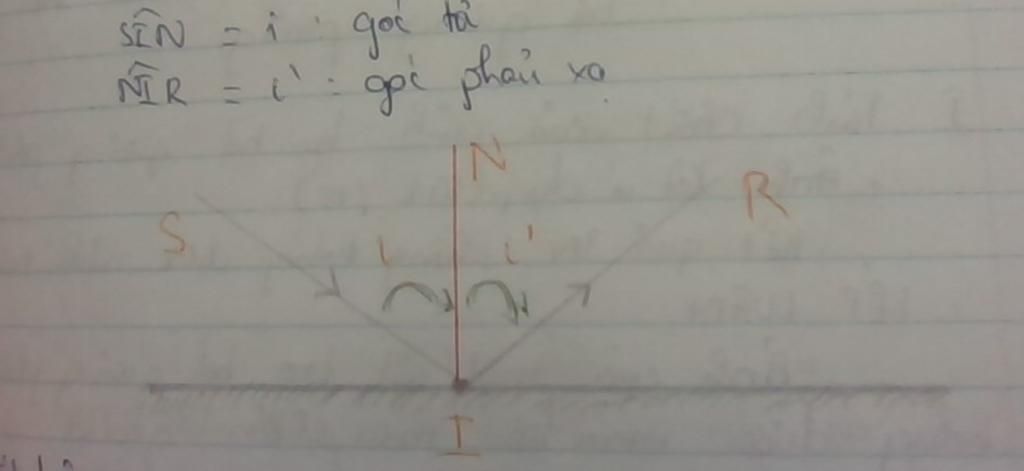 SÎN = i : góc tả
N̂IR = i' : góc phản xạ
N
S
R
i
i'
I